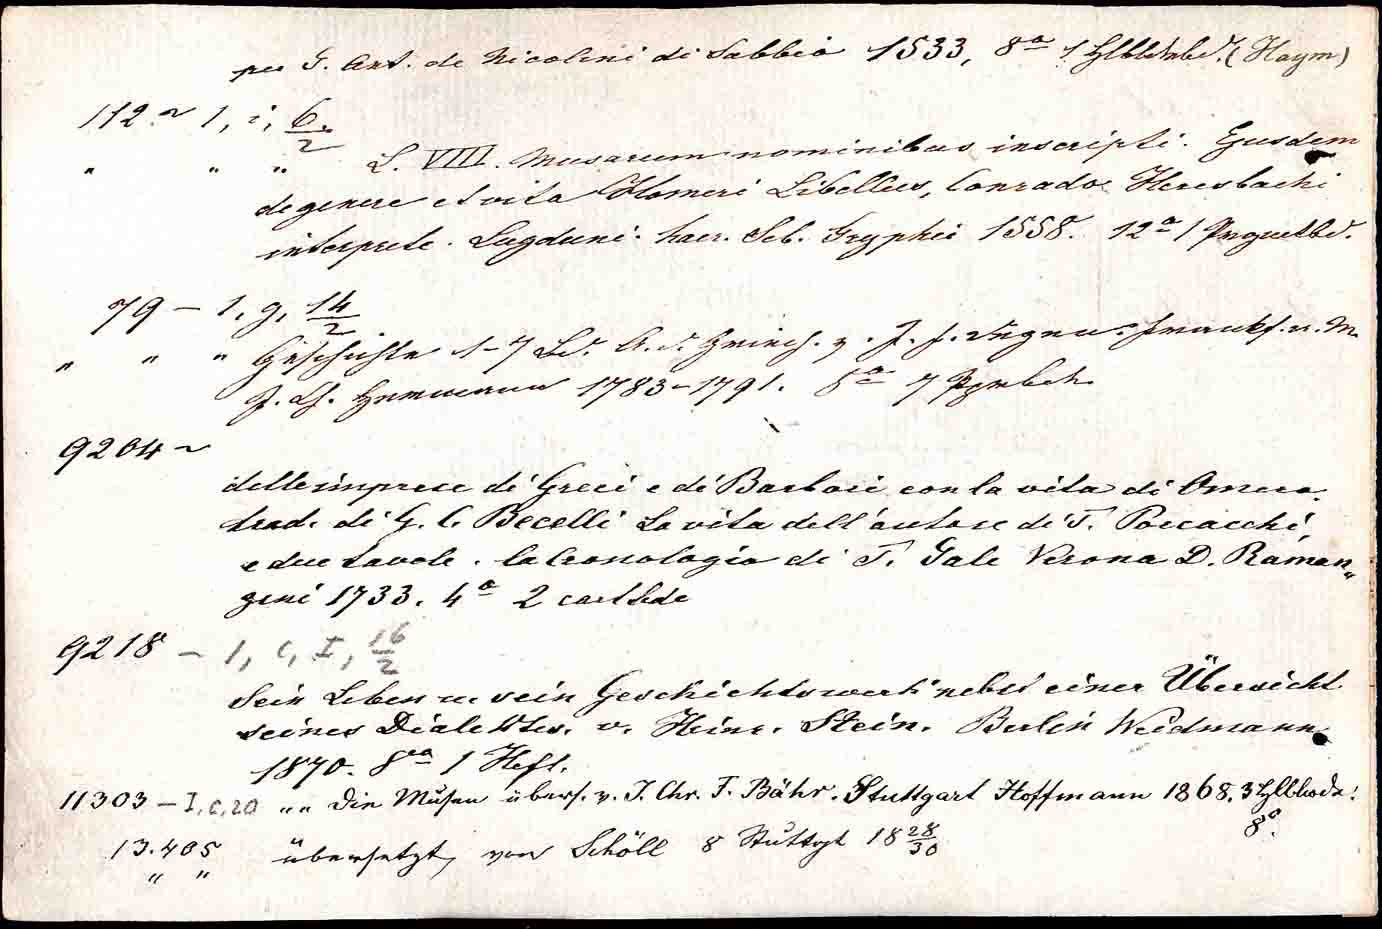 per G. Ant. de Nicolini di Sabbio 1533, 8ª 1 Hlbldrbd. (Haym)
112.~ 1, i, 6/2
" " " L. VIII. Musarum nominibus inscripti. Ejusdem
de genere et vita Homeri Libellus, Conrado Heresbachi
interprete. Lugduni. haer. Seb. Gryphii 1558. 12ª 1 Prgmtbd.
79 – 1, g, 14/2
" " " Geschichte 1–7 Bd. A. d. Griech. v. J. F. Degen. Frankf. a. M.
J. Ch. Hermann 1783–1791. 8ª 7
9204 ~
delle imprese de' Greci e de' Barbari con la vita di Omero.
trad. di G. C. Becelli La vita dell'autore di T. Porcacchi
e due tavole. la Cronologia di T. Gale Verona D. Raman„
zini 1733. 4ª 2
9218 – 1, C, I, 16/2
Sein Leben u. sein Geschichtswerk nebst einer Übersicht
seines Dialektes. v. Heinr. Stein. Berlin Weidmann
1870. 8va 1 Heft.
11303 – I, C, 20 „ „ Die Musen übers. v. J. Chr. F. Bähr. Stuttgart Hoffmann 1868. 3
8º.
13.405 übersetzt, von Schöll 8 Stuttgt 18 28/30
" "